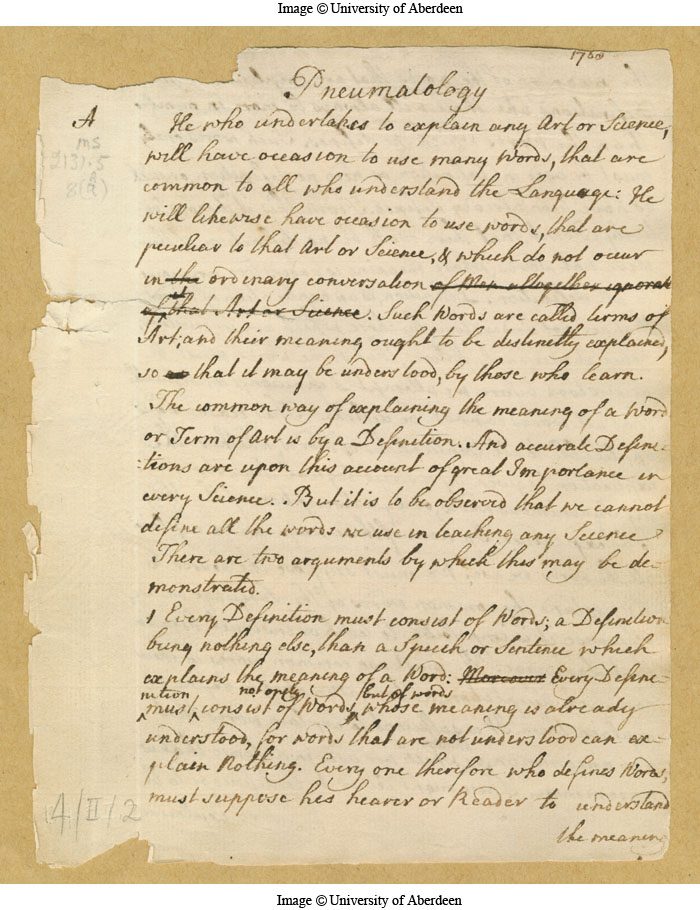 Image © University of Aberdeen
1768
Pneumatology
A
He who undertakes to explain any Art or Science,
ms
2131.5
8(d)
will have occasion to use many Words, that are
common to all who understand the Language: He
will likewise have occasion to use words, that are
peculiar to that Art or Science, & which do not occur
in the ordinary conversation of Men altogether ignorant
of that Art or Science. Such Words are called terms of
Art; and their meaning ought to be distinctly explained,
so as that it may be understood, by those who learn.
The common way of explaining the meaning of a Word
or Term of Art is by a Definition. And accurate Defini-
tions are upon this account of great Importance in
every Science. But it is to be observed that we cannot
define all the words we use in teaching any Science
There are two arguments by which this may be de-
monstrated.
1 Every Definition must consist of Words; a Definition
being nothing else, than a Speech or Sentence which
explains the meaning of a Word: Moreover Every Defini-
nition not only but of words
must consist of Words, whose meaning is already
understood, for words that are not understood can ex-
plain Nothing. Every one therefore who defines Words,
must suppose his hearer or Reader to understand
the meaning
4/II/2
Image © University of Aberdeen